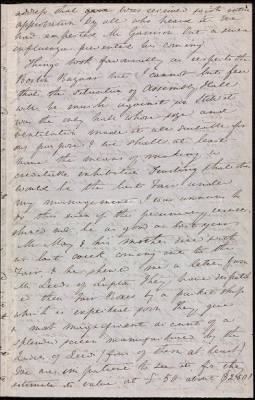 address that was received with entire
approbation by all who heard it. We
had expected Mr Garrison but a severe
influenza prevented his coming
Things look favourably as respects the
Boston Bazaar but I cannot but fear
that the situation of Assembly Hall
will be much against us though it
was the only hall whose size and
ventilation made it at all suitable for
our purpose & we shall at least
have the means of making a
creditable exhibition. Trusting that this
would be the last Fair under
my management, I was anxious
so that even if the pecuniary
should not be as good as last year
Mr May & his mother were with
us last week coming out to our
Fair & he showed me a letter from
Mr of Leeds They have despatched
their Fair Boxes by a packet ship
which is expected soon They give
a most magnificent account of a
splendid screen by the
Ladies of Leeds (four of them at least)
We are impatient to see it for they
estimate its value at £ 50 about $250!